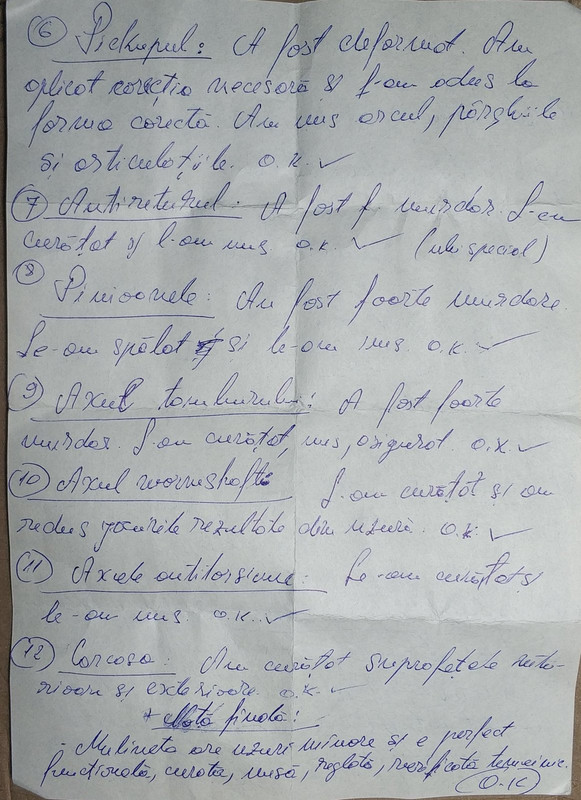 6 Pickupul: A fost deformat. Am
aplicat corecția necesară și l-am adus la
forma corectă. Am uns arcul, pârghiile
și articulațiile. O.K. ✓
7 Antireturul: A fost f murdar. L-am
curățat și l-am uns O.K. ✓ (ulei special)
8
Pinioanele: Au fost foarte murdare.
Le-am spălat și le-am uns. O.K. ✓
9 Axul tamburului: A fost foarte
murdar. L-am curățat, uns, asigurat. O.K. ✓
10 Axul wormshaft L-am curățat și am
redus jocurile rezultate din uzură. O.K. ✓
11 Axele antitorsiune: Le-am curățat și
le-am uns. O.K. ✓
12 Carcasa: Am curățat suprafețele inte-
rioare și exterioare. O.K. ✓
+ Notă finală:
- Mulineta are uzuri minore și e perfect
funcțională, curată, unsă, reglată, verificată temeinic.
O.K